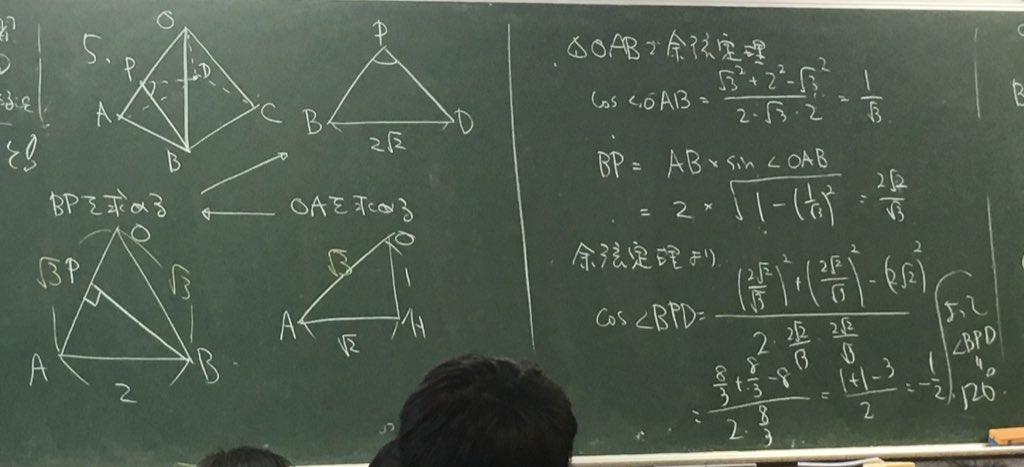 5.
O
P
D
A
C
B
P
B
D
2√2
BPを求める
OAを求める
O
√3
P
√3
A
B
2
O
√3
1
A
H
√2
△OABで余弦定理
cos∠OAB = (√3² + 2² - √3²) / (2・√3・2) = 1/√3
BP = AB × sin∠OAB
= 2 × √(1 - (1/√3)²) = 2√2/√3
余弦定理より
cos∠BPD = ((2√2/√3)² + (2√2/√3)² - (2√2)²) / (2・2√2/√3・2√2/√3)
= (8/3 + 8/3 - 8) / (2・8/3) = (1+1-3)/2 = -1/2
よって
∠BPD
=
120°